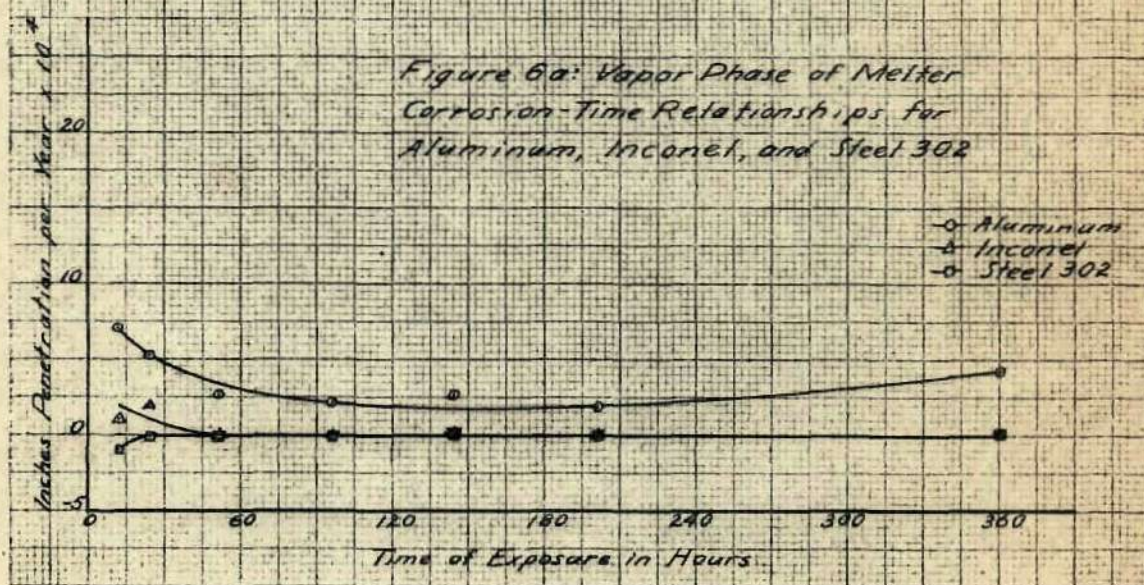 Figure 6a: Vapor Phase of Melter
Corrosion-Time Relationships for
Aluminum, Inconel, and Steel 302
Aluminum
Inconel
Steel 302
Inches Penetration per Year x 10⁴
20
10
0
-5
0 60 120 180 240 300 360
Time of Exposure in Hours